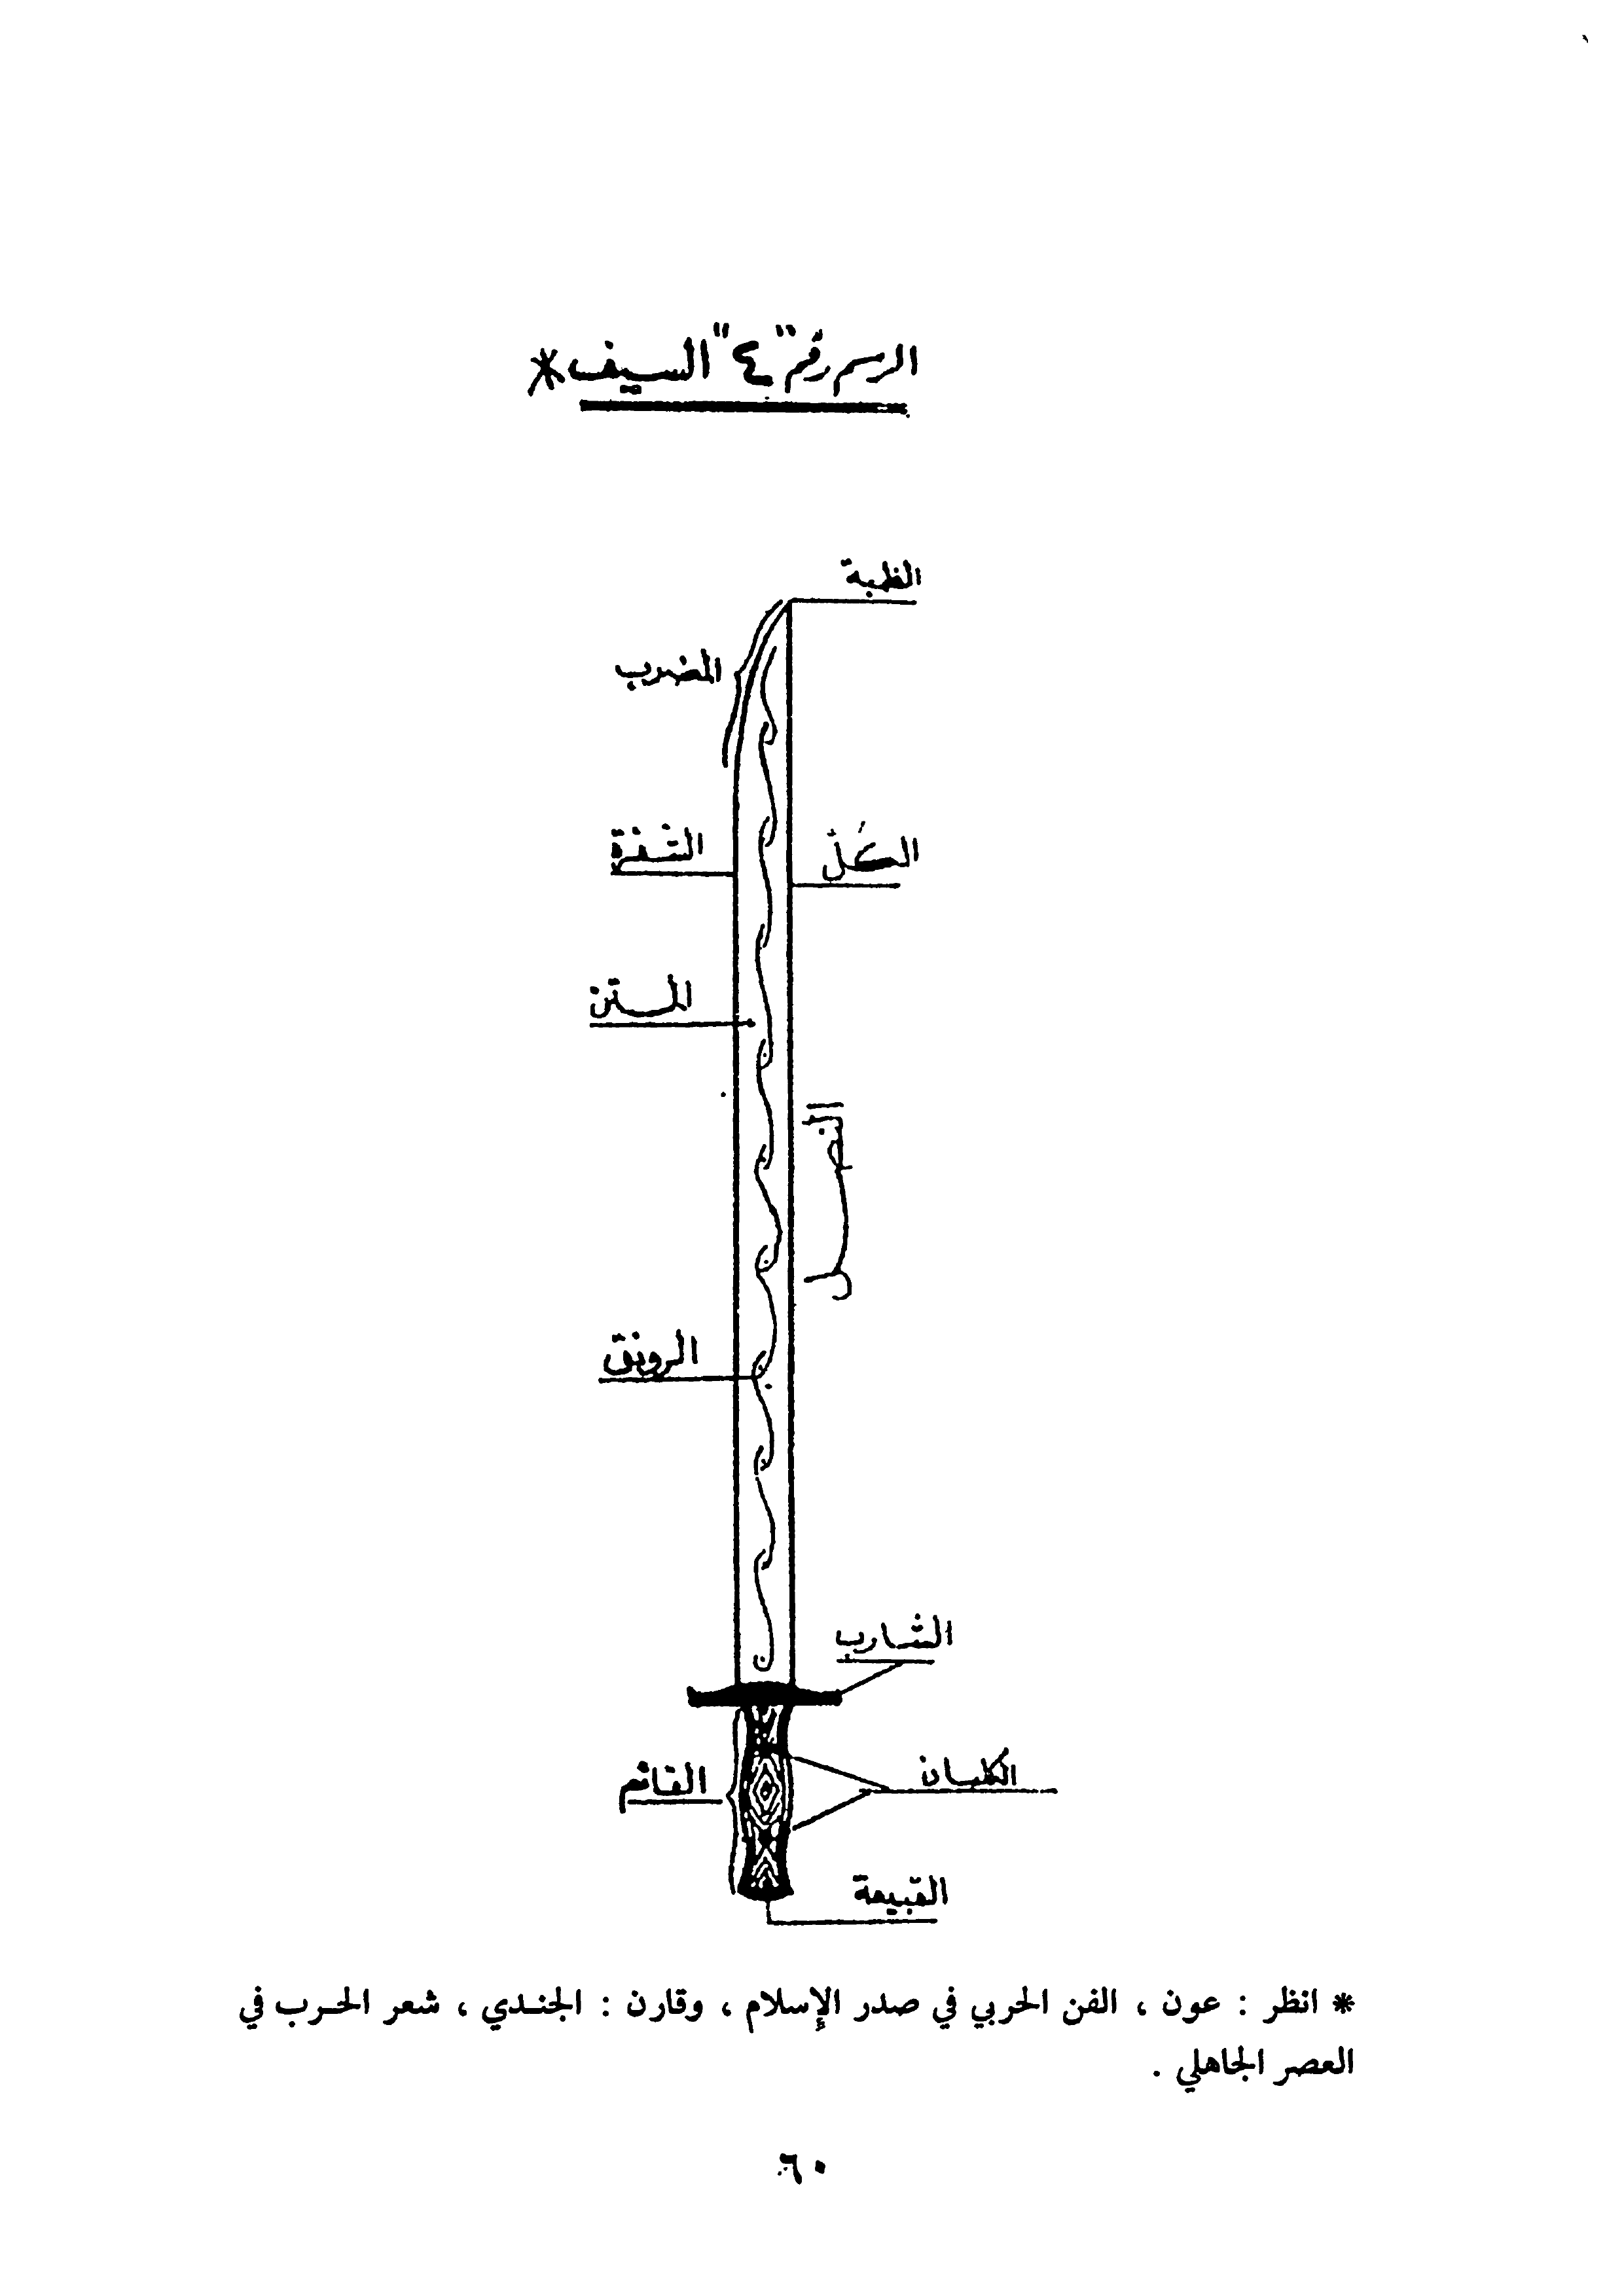 الرسم رقم "٤" السيف*
الظبة
المضرب
الشفرة
الكَلّ
المتن
النصل
الرونق
الشارب
القائم
الكلبان
القبيعة
* انظر : عون ، الفن الحربي في صدر الإسلام ، وقارن : الجندي ، شعر الحرب في
العصر الجاهلي .
٦٠